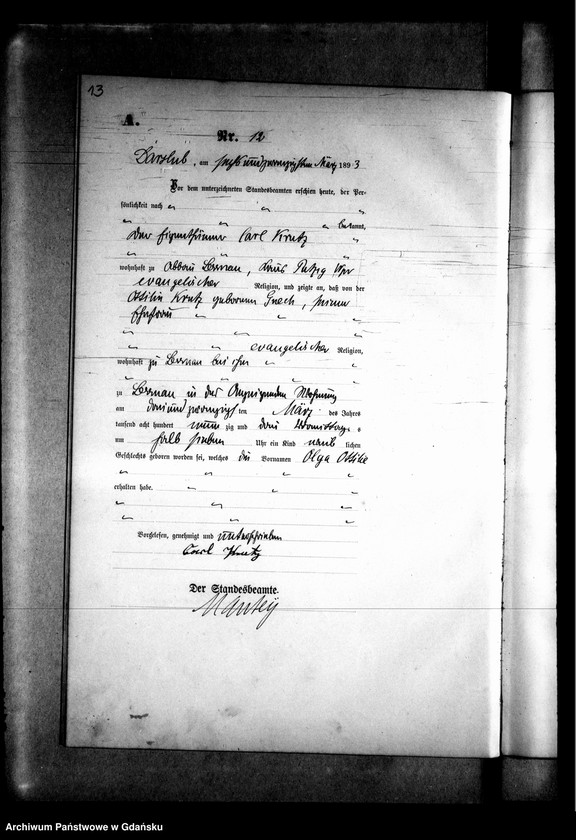 13
A.
Nr. 12
Darslub, am sechsundzwanzigsten März 1893
Vor dem unterzeichneten Standesbeamten erschien heute, der Per-
sönlichkeit nach
bekannt,
der Eigenthümer Carl Krutz
wohnhaft zu Abbau Lesnau, Kreis Putzig Wpr
evangelischer Religion, und zeigte an, daß von der
Ottilie Krutz geborenen, seiner
Ehefrau
evangelischer Religion,
wohnhaft zu Lesnau bei ihm
zu Lesnau in der Wohnung
am dreiundzwanzigsten März des Jahres
tausend acht hundert neun zig und drei Vormittags
um halb sieben Uhr ein Kind weib lichen
Geschlechts geboren worden sei, welches die Vornamen Olga Ottilie
erhalten habe.
Vorgelesen, genehmigt und unterschrieben
Carl Krutz
Der Standesbeamte.
Mantey
Archiwum Państwowe w Gdańsku